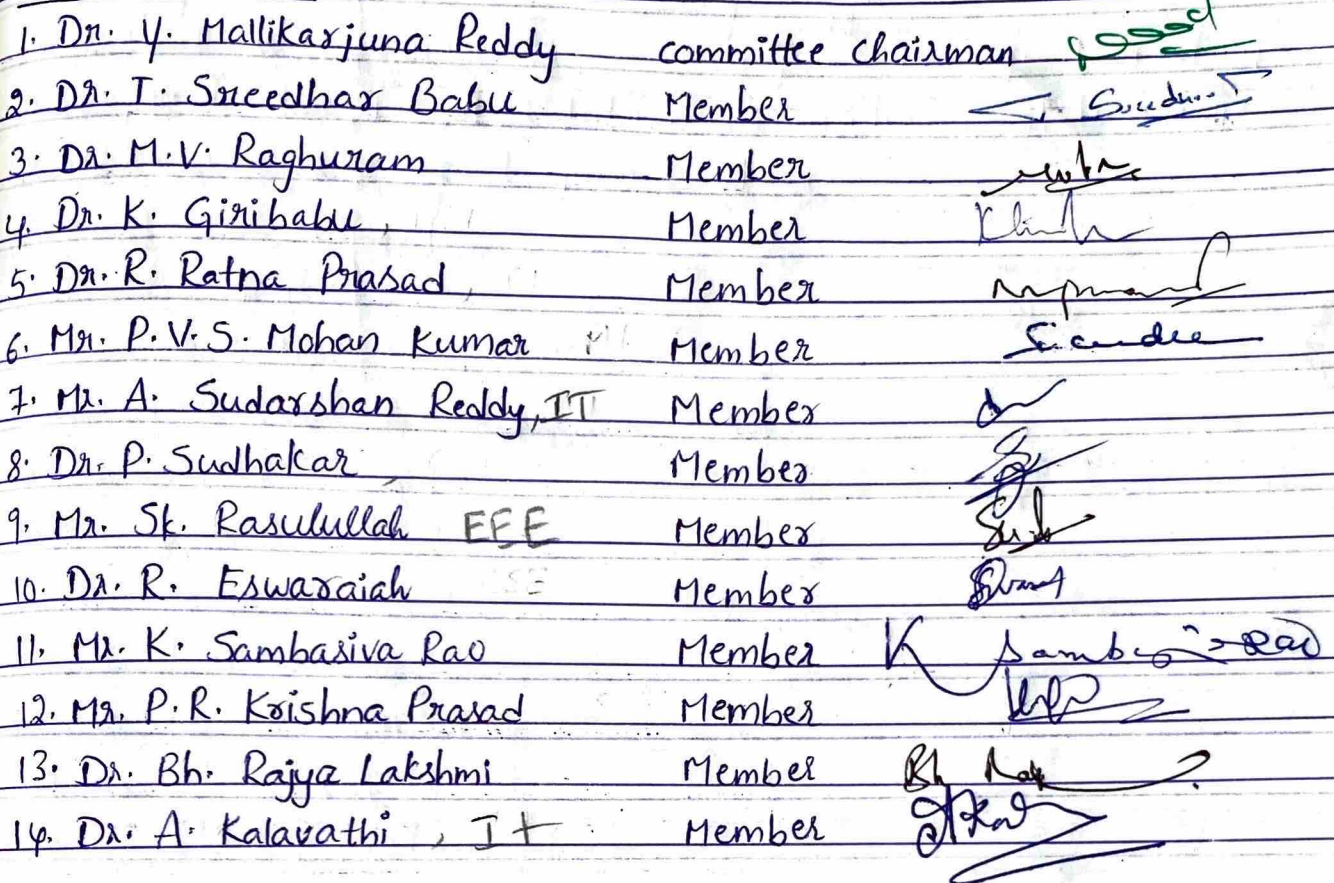 1. Dr. Y. Mallikarjuna Reddy committee chairman
2. Dr. T. Sreedhar Babu Member
3. Dr. M.V. Raghuram Member
4. Dr. K. Giribabu, Member
5. Dr. R. Ratna Prasad Member
6. Mr. P.V.S. Mohan Kumar Member
7. Mr. A. Sudarshan Reddy, IT Member
8. Dr. P. Sudhakar Member
9. Mr. Sk. Rasulullah EEE Member
10. Dr. R. Eswaraiah Member
11. Mr. K. Sambasiva Rao Member K
12. Mr. P.R. Krishna Prasad Member
13. Dr. Bh. Rajya Lakshmi Member Bh
14. Dr. A. Kalavathi, It Member